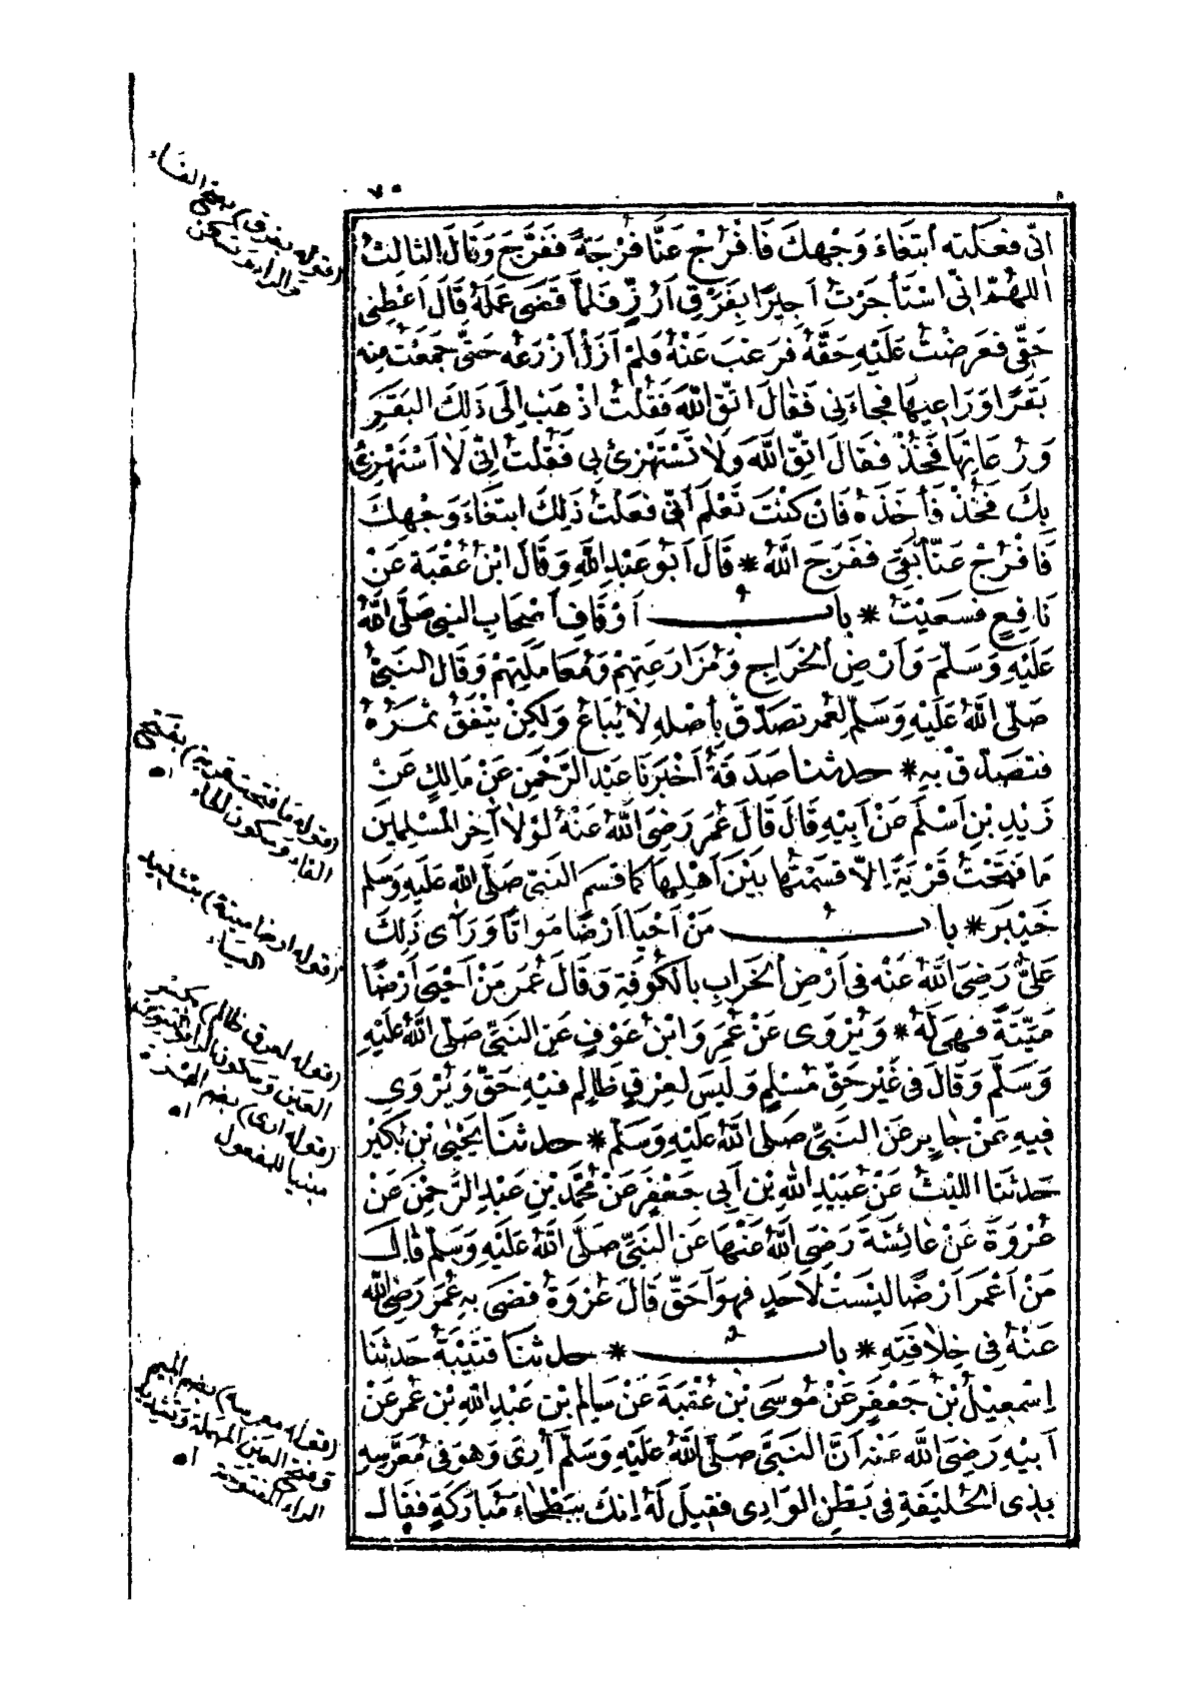 ٧٥
اِنِّى فعَلته ابتغَاءَ وَجْهِكَ فَافْرُجْ عَنَّا فرْجَةً فَفَرَّجَ وَقالَ الثالثُ
اَللهُمّ اِنِّى اسْتَأجَرْتُ اَجِيرًا بِفَرَقِ اَرُزٍّ فلَمَّا قضَى عَمَلَهُ قَالَ اَعْطِنِى
حَقِّى فعَرَضْتُ عَلَيْهِ حَقَّهُ فرَغبَ عَنْهُ فلمْ اَزَلْ اَزْرَعُه حَتَّى جَمَعْت مِنه
بَقَرًا وَرَاعِيهَا فجاءَنِى فقَالَ اتّقِ اللّهَ فَقُلْتُ اذْهَبْ اِلَى ذَلِكَ البَقَرِ
وَرُعَاتِهَا فَخُذْ فقَالَ اتَّقِ اللّهَ وَلا تَسْتَهْزِئْ بِى فَقُلْتُ اِنِّى لا اَسْتَهْزِئُ
بِكَ فَخُذْ فَأخَذَهُ فَانْ كُنْتَ تَعْلَم أنّى فعَلتُ ذَلِكَ ابتغَاءَ وَجْهِكَ
فَافْرُجْ عَنَّا مَا بَقِىَ ففَرَجَ اللّهُ * قَالَ اَبُو عَبْدِ اللّهِ وَقَالَ ابْنُ عُقْبَة عَنْ
نَافِعٍ فسَعَيْتُ * بابُ اَوْقَافِ أصْحَابِ النبِى صَلَّى اللّهُ
عَلَيْهِ وَسَلّمَ وَأَرْضِ الْخَرَاجِ وَمُزَارَعَتِهِمْ وَمُعَامَلَتِهِمْ وَقَال النَّبِىُّ
صَلّى اللّهُ عَلَيْهِ وَسَلّمَ لِعُمَر تصَدَّقْ بِأصْلِهِ لا يُبَاعُ وَلكِنْ يُنْفَقُ ثمَرُهُ
فتصَدّقَ بِهِ * حدثنا صَدَقَةُ أَخْبَرَنَا عَبْد الرّحْمَنِ عَنْ مَالِكٍ عَنْ
زَيْدِ بْنِ اَسْلَمَ عَنْ اَبِيْهِ قَالَ قَالَ عُمَر رَضِىَ اللّهُ عَنْهُ لَوْلا آخِر المُسْلِمِينَ
مَا فتَحْتُ قَرْيَةً اِلاّ قَسَمْتُهَا بَيْنَ اَهْلِهَا كمَا قسَم النَبِىّ صَلّى اللّه عَلَيهِ وَسَلم
خَيْبَر * بابُ مَنْ اَحْيَا اَرْضًا مَوَاتًا وَرَأَى ذَلِكَ
عَلىٌّ رَضِىَ اللّهُ عَنْه فِى اَرْضِ الْخَرَابِ بِالْكُوفَةِ وَقَالَ عُمَر مَنْ اَحْيَى اَرْضًا
مَيّتَةً فهِىَ لَهُ * وَيُرْوَى عَنْ عُمَر وَابْنِ عَوْفٍ عَنِ النَبِىِّ صَلّى اللّهُ عَلَيْهِ
وَسَلّمَ وَقَالَ فِى غَيْر حَقِّ مُسْلِمٍ وَلَيْسَ لِعِرْقٍ ظَالِم فِيْهِ حَقٌّ وَيُرْوَى
فِيهِ عَنْ جَابِر عَنِ النَبِىِّ صَلى اللّهُ عَلَيْهِ وَسَلّمَ * حدثنا يَحْيَى بْنُ بُكَيْرٍ
حَدثنَا اللَّيْثُ عَنْ عُبَيْدِ اللّهِ بْنِ اَبِى جَعْفَرٍ عَنْ مُحَمّدِ بْنِ عَبْدِ الرَّحْمنِ عَنْ
عُرْوَةَ عَنْ عَائِشَةَ رَضِىَ اللّهُ عَنْهَا عَنِ النَبِىِّ صَلّى اللّهُ عَلَيْهِ وَسَلّمَ قَالَ
مَنْ اَعْمَرَ اَرْضًا ليْسَتْ لاَحَدٍ فهوَ اَحَقّ قَالَ عُرْوَةُ قضَى بِهِ عُمَر رَضِىَ اللّه
عَنْهُ فِى خِلافَتِهِ * بابُ * حدثنا قتَيْبَةُ حَدثنَا
اِسْمعِيْلُ بْنُ جَعْفَرٍ عَنْ مُوسَى بْنِ عُقْبَةَ عَنْ سَالِم بْنِ عَبْدِ اللّهِ بْنِ عُمَر عَنْ
اَبِيْهِ رَضِىَ اللّه عَنْهُ اَنَّ النَبِىَّ صَلّى اللّهُ عَلَيْهِ وَسَلّمَ أُرِىَ وَهوَ فِى مُعَرَّسِهِ
بِذِى الْحُلَيْفَةِ فِى بَطْنِ الْوَادِى فقِيلَ لَهُ اِنّكَ بِبَطْحَاءَ مُبَارَكَةٍ فقَالَ
(قوله بفرق) بفتح الفَاء
والراء وتسكن
(قوله مَا فتحت قرية) بفَتح
الفاء وسكون الحاء اه
(قوله ارضا ميتة) بتشديد
اليَاء
(قوله لعرق ظالم) بكسر
العَين وَسكون الراء وَالتنوين
(قوله ارى) بضم الهمزة
مبنيا للمفعول اه
(قوله معرسه) بضم الميم
وفتح العَين المهملة وَتشديد
الراء المفتوحة اه